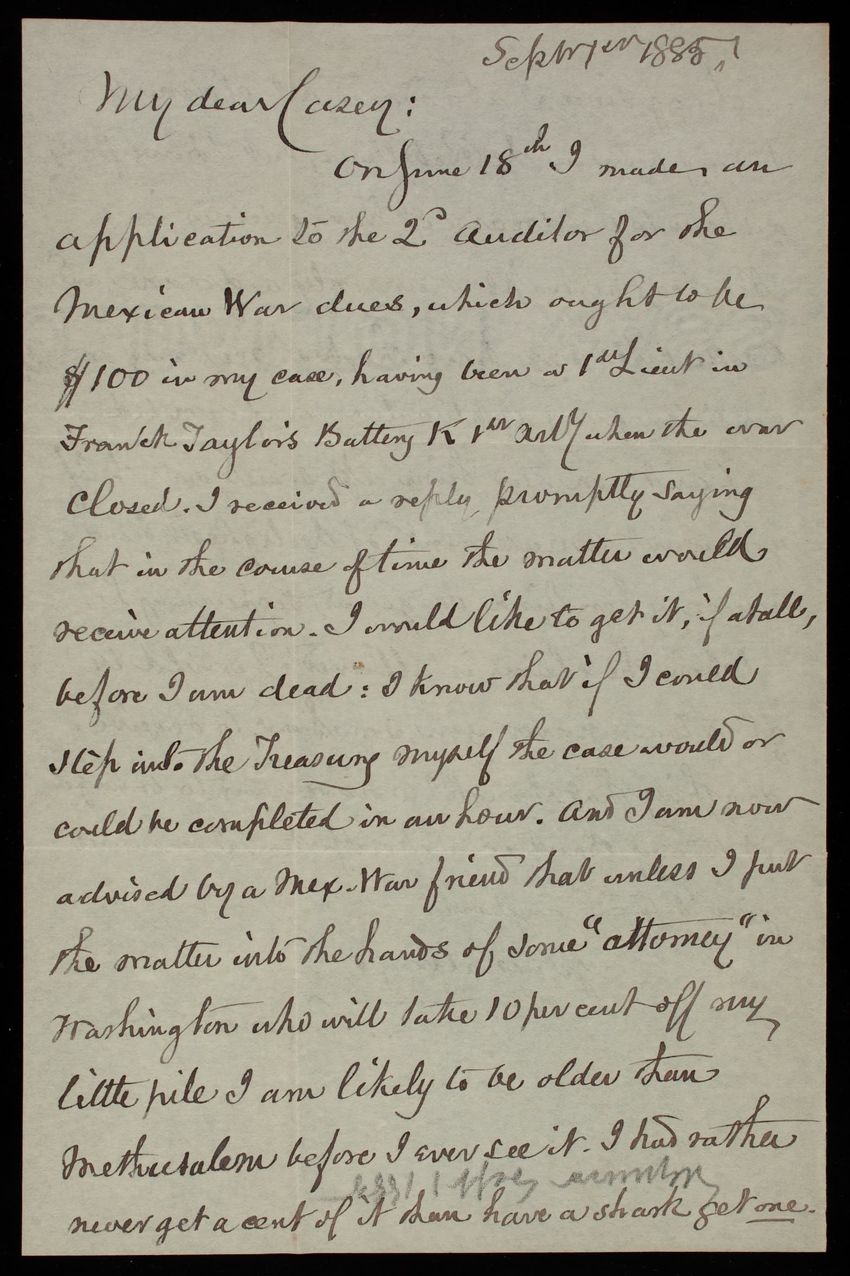 Septbr 1885
My dear Casey:
On June 18th I made an
application to the 2d Auditor for the
Mexican War dues, which ought to be
$100 in my case, having been a 1st Lieut in
Franck Taylor's Battery K 1st Arty when the war
closed. I received a reply promptly saying
that in the course of time the matter would
receive attention. I would like to get it, if at all,
before I am dead: I know that if I could
step into the Treasury myself the case would or
could be completed in an hour. And I am now
advised by a Mex. War friend that unless I put
the matter into the hands of some "attorney" in
Washington who will take 10 per cent off my
little pile I am likely to be older than
Methusalem before I ever see it. I had rather
never get a cent of it than have a shark get one.
Sept 1 1885